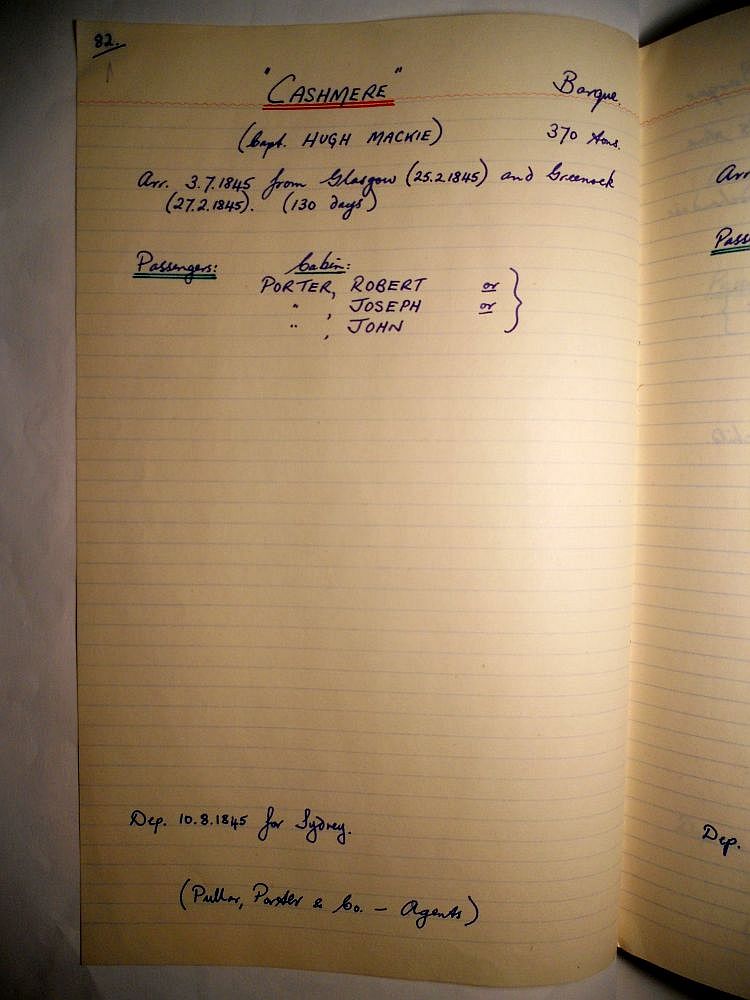 82.
"CASHMERE" Barque.
(Capt. HUGH MACKIE) 370 tons.
Arr. 3.7.1845 from Glasgow (25.2.1845) and Greenock
(27.2.1845). (130 days)
Passengers: Cabin:
PORTER, ROBERT or }
" , JOSEPH or
" , JOHN
Dep. 10.8.1845 for Sydney.
(Pullar, Porter & Co. - Agents)
Arr
Pass
Dep.